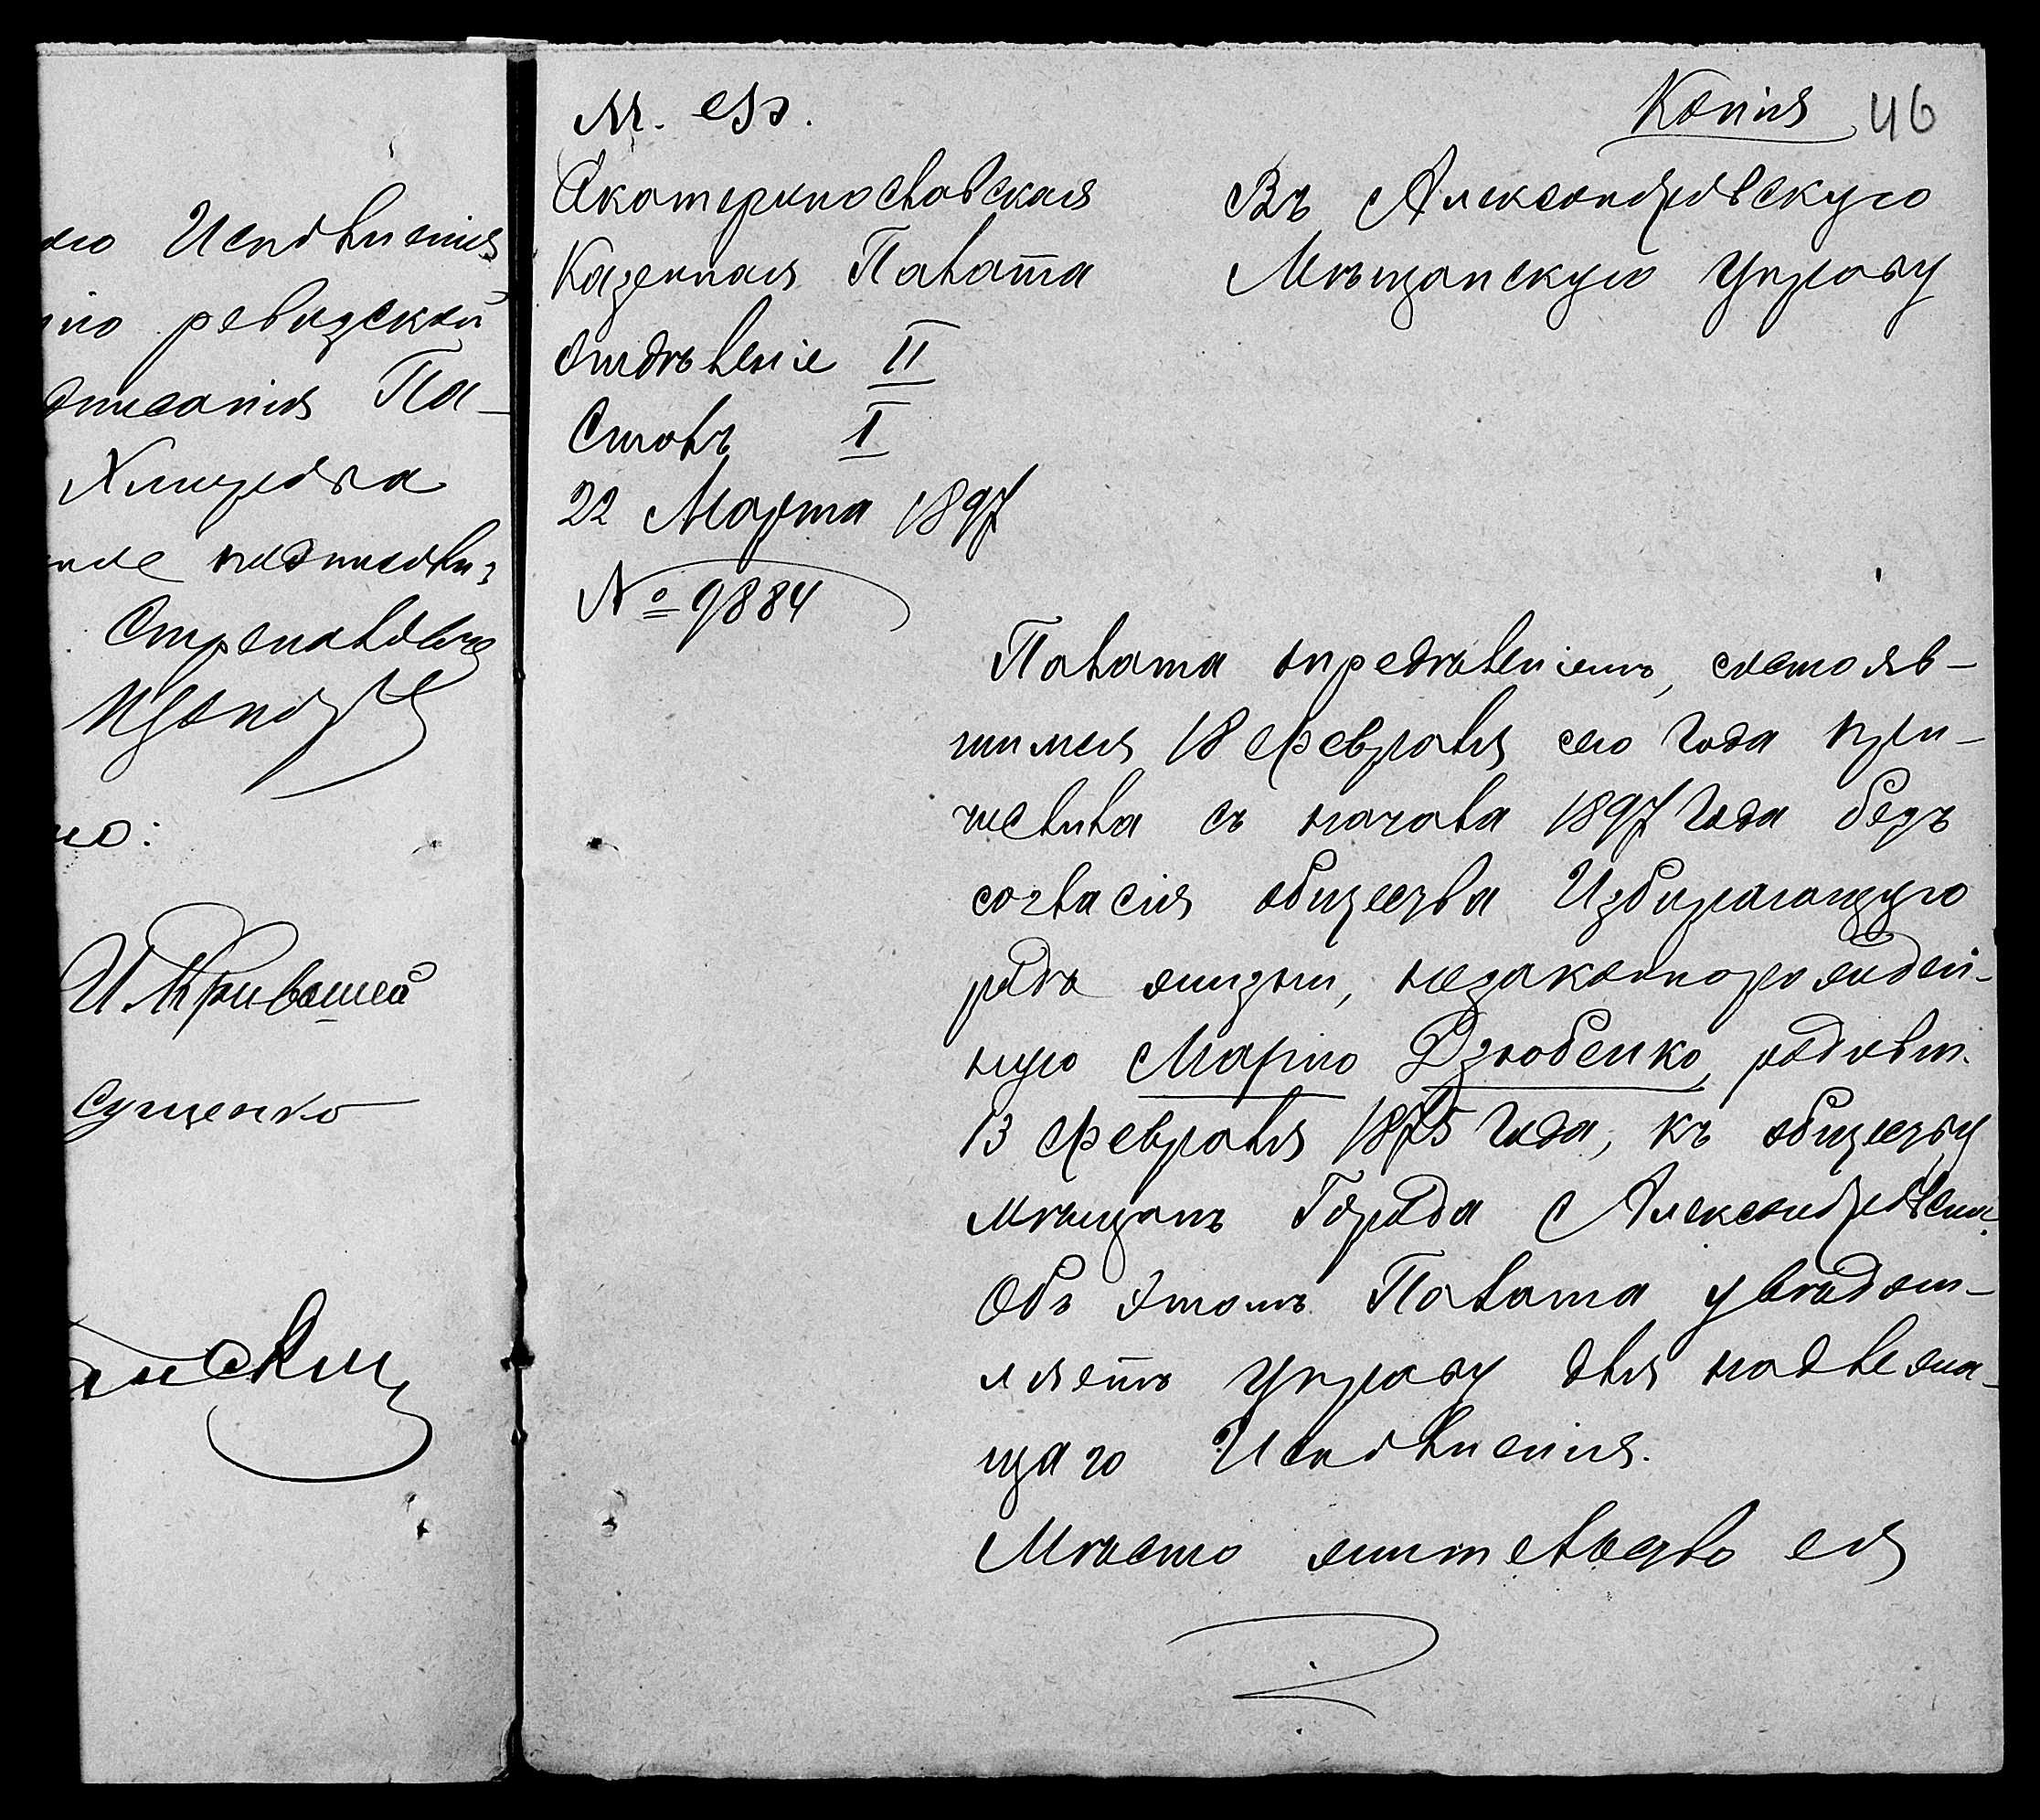 ію Исполненія
ію ревизской
описанія Па-
Хмырова
подписали:
И Кривошей
Сущенко
М. Ф.
Копія 46
Екатеринославская
Казенная Палата
Отдѣленіе II
Столъ I
22 Марта 1897
№ 9884
Въ Александровскую
Мѣщанскую Управу
Палата опредѣленіемъ, состояв-
шимся 18 Февраля сего Года при-
числила съ начала 1897 Года безъ
согласія общества Избирающую
родъ жизни, незаконнорожден-
ную Марію Дзюбенко, родивш.
13 Февраля 1875 Года, къ обществу
мѣщанъ Города Александровска.
Объ этомъ Палата увѣдом-
ляетъ Управу для надлежа-
щаго Исполненія.
Мѣсто жительство ея